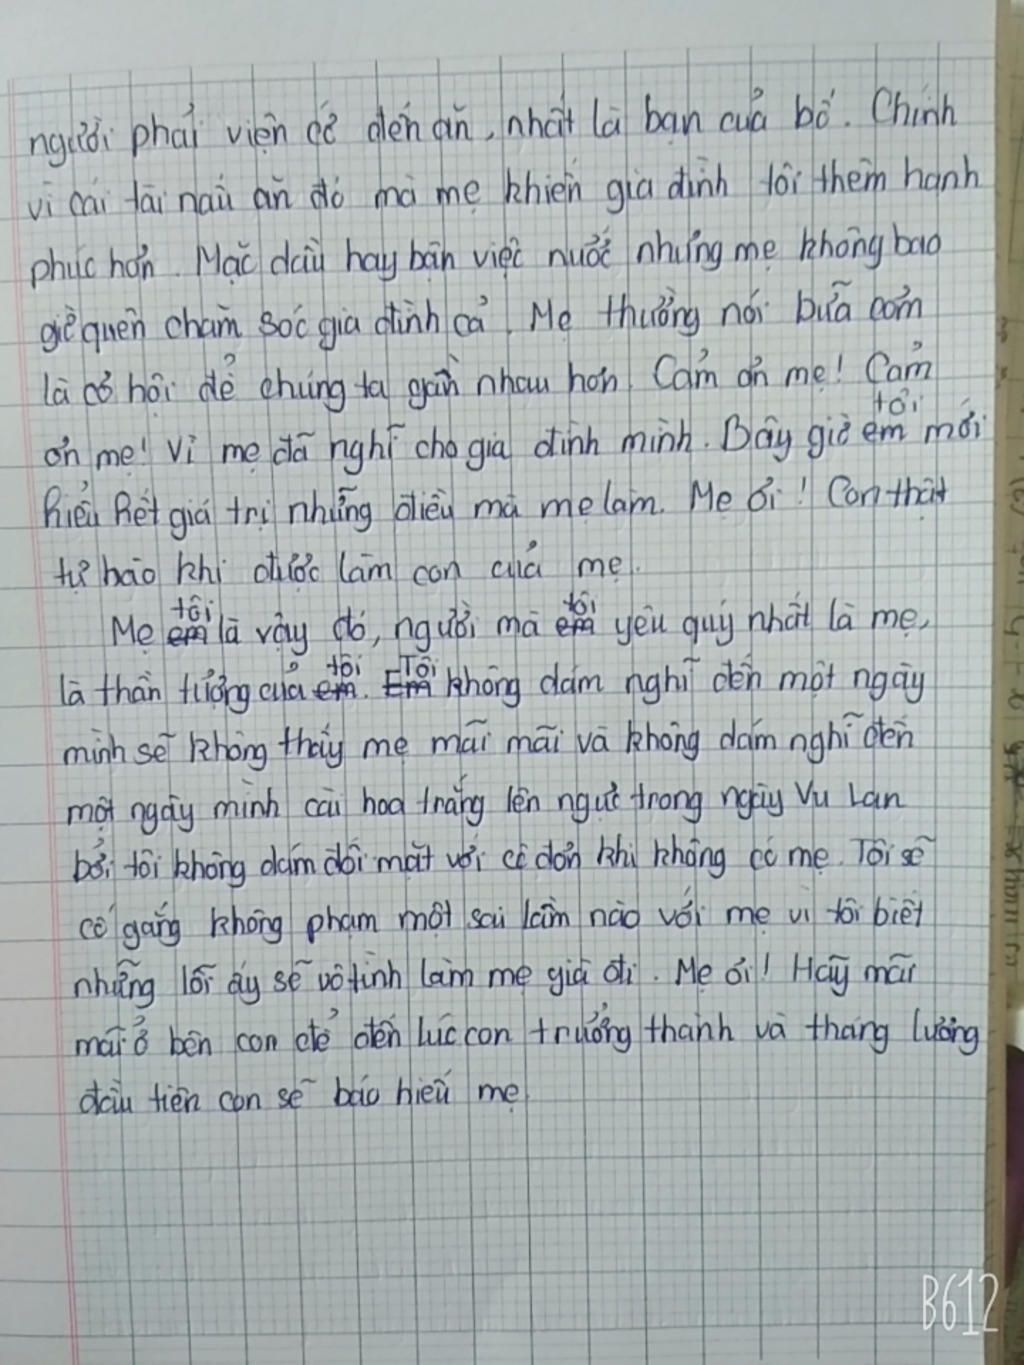 người phải viện cớ đến ăn, nhất là bạn của bố. Chính
vì cái tài nấu ăn đó mà mẹ khiến gia đình tôi thêm hạnh
phúc hơn. Mặc dầu hay bận việc nước nhưng mẹ không bao
giờ quên chăm sóc gia đình cả. Mẹ thường nói bữa cơm
là cơ hội để chúng ta gần nhau hơn. Cảm ơn mẹ! Cảm
ơn mẹ! Vì mẹ đã nghĩ cho gia đình mình. Bây giờ em tôi mới
hiểu hết giá trị những điều mà mẹ làm. Mẹ ơi! Con thật
tự hào khi được làm con của mẹ.
Mẹ em tôi là vậy đó, người mà em tôi yêu quý nhất là mẹ,
là thần tượng của em tôi. Em Tôi không dám nghĩ đến một ngày
mình sẽ không thấy mẹ mãi mãi và không dám nghĩ đến
một ngày mình cài hoa trắng lên ngực trong ngày Vu Lan
bởi tôi không dám đối mặt với cô đơn khi không có mẹ. Tôi sẽ
cố gắng không phạm một sai lầm nào với mẹ vì tôi biết
những lỗi ấy sẽ vô tình làm mẹ già đi. Mẹ ơi! Hãy mãi
mãi ở bên con để đến lúc con trưởng thành và tháng lương
đầu tiên con sẽ báo hiếu mẹ.
B612